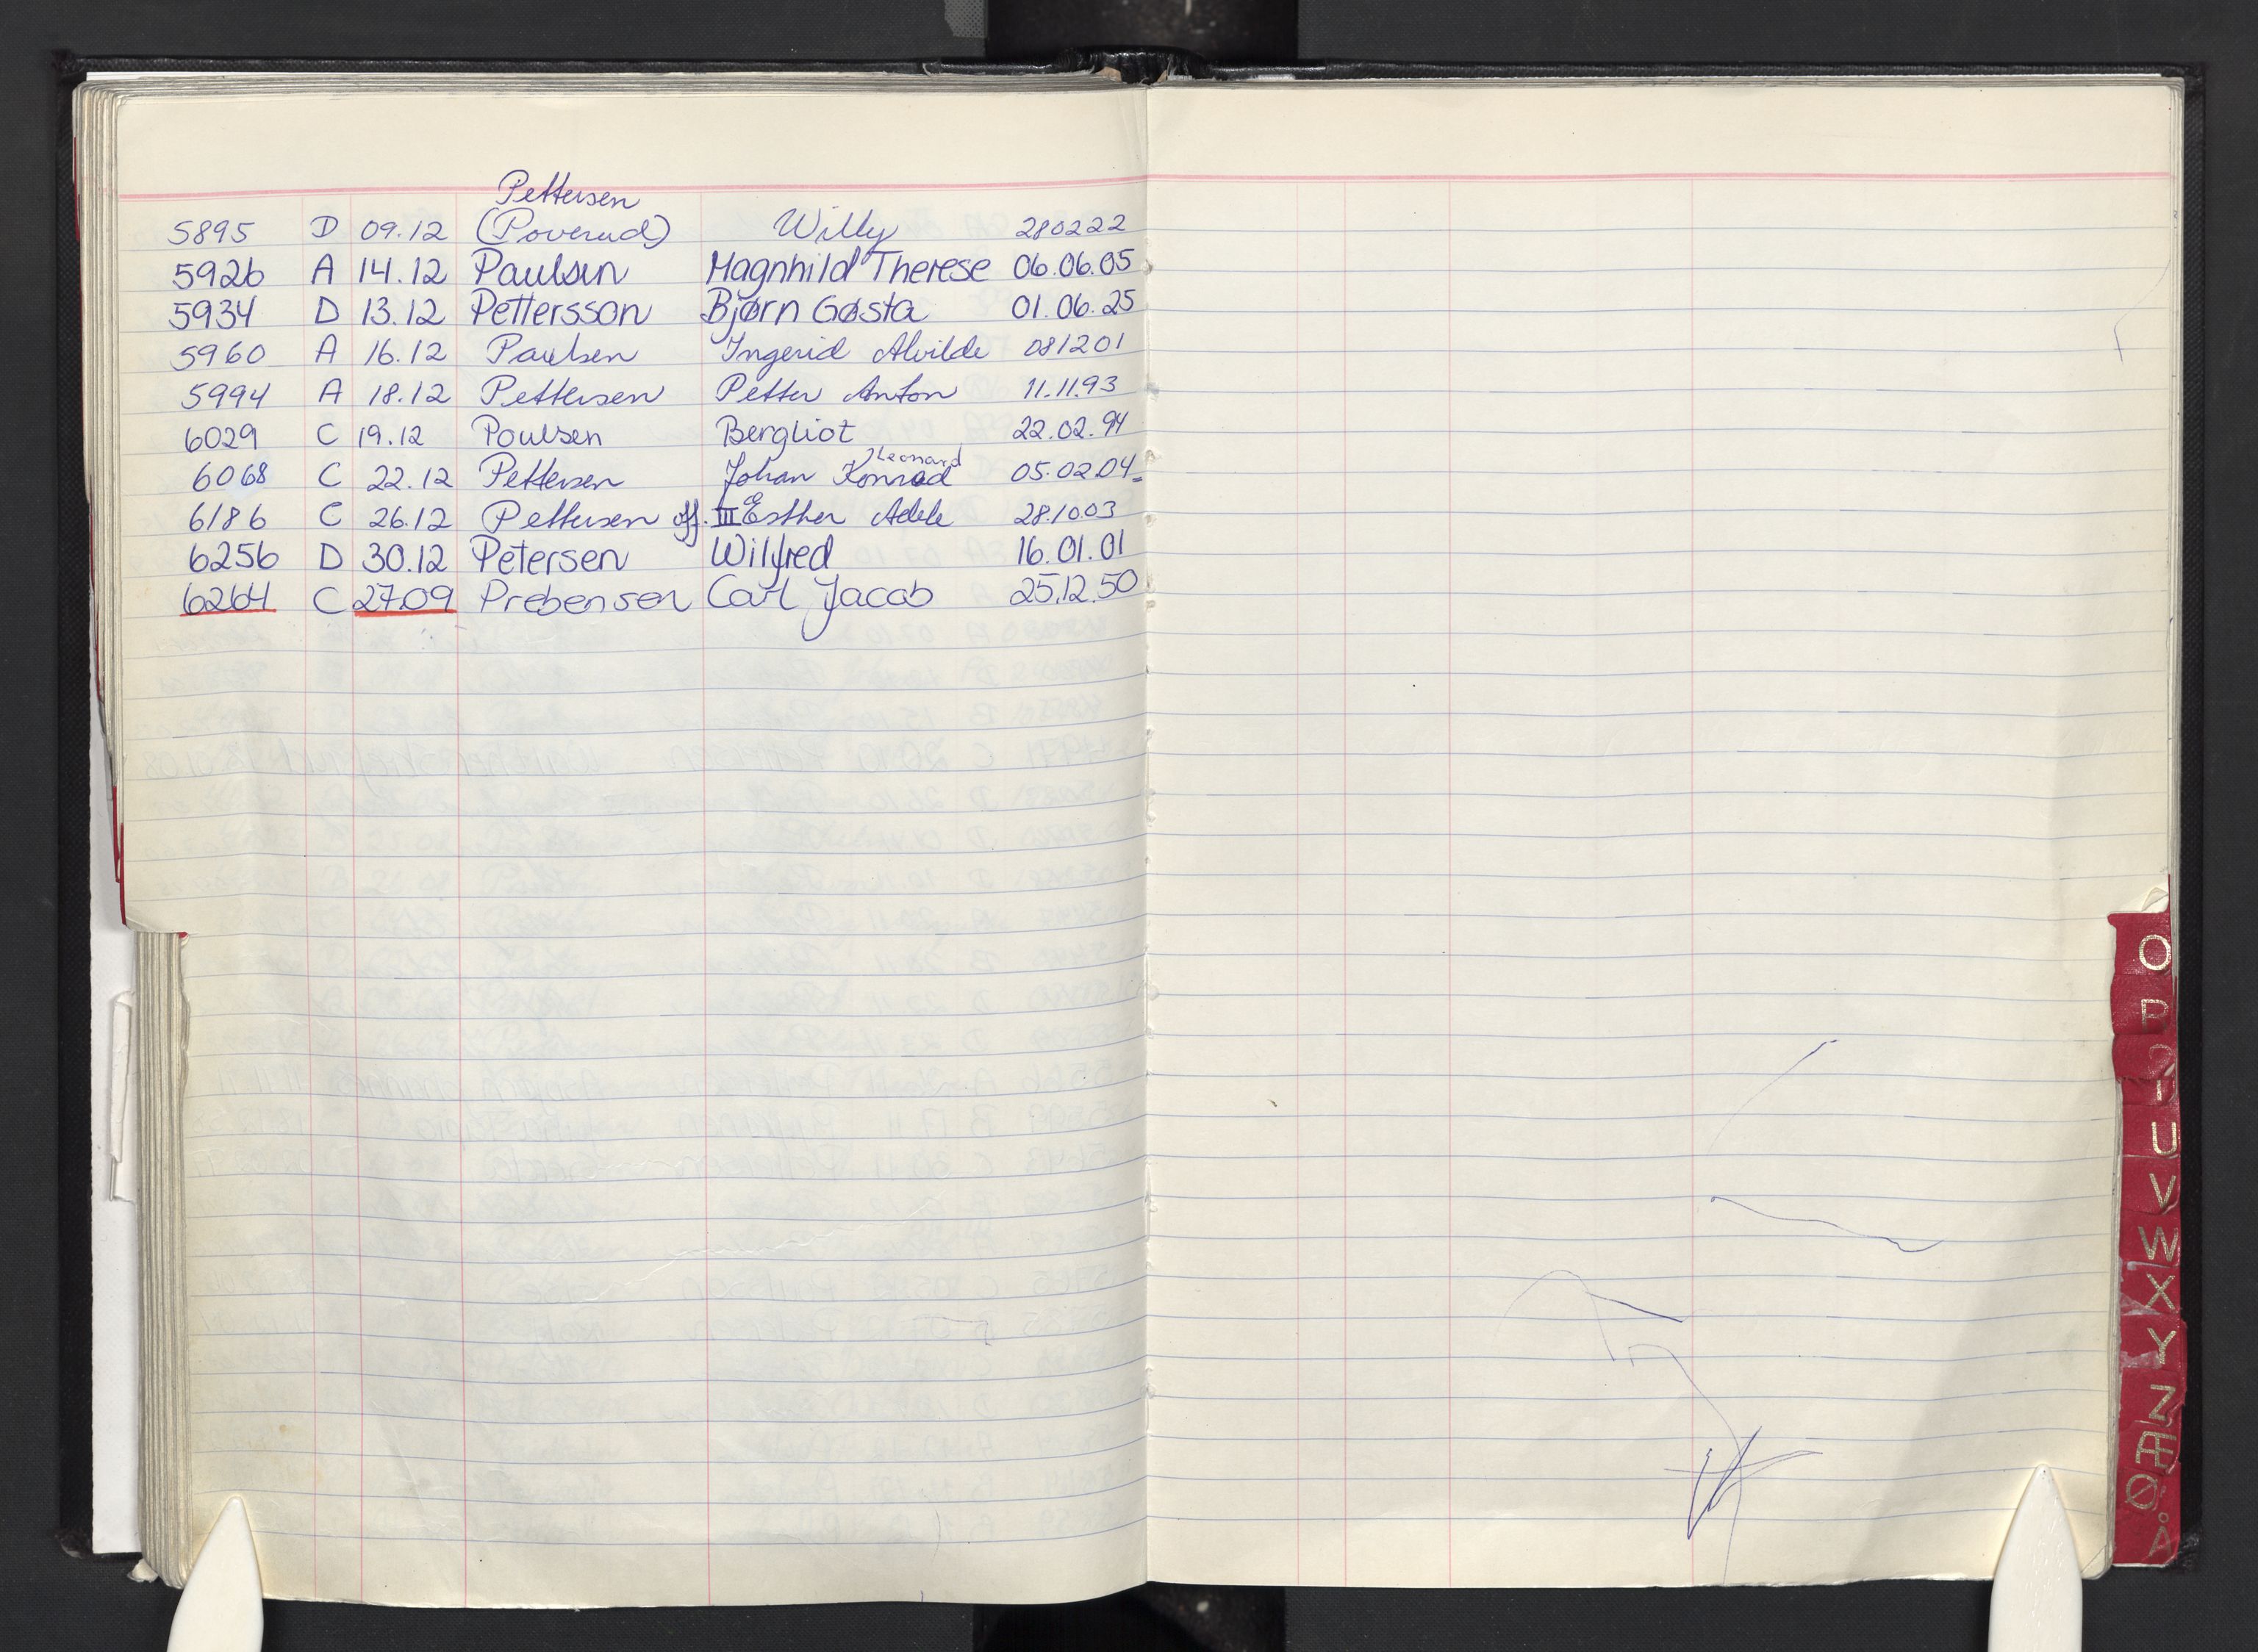 Pettersen
5895 D 09.12 (Poverud) Willy 280222
5926 A 14.12 Paulsen Magnhild Therese 06.06.05
5934 D 13.12 Pettersson Bjørn Gøsta 01.06.25
5960 A 16.12 Paulsen Ingerid Alvilde 081201
5994 A 18.12 Pettersen Petter Anton 11.11.93
6029 C 19.12 Poulsen Bergliot 22.02.94
Leonard
6068 C 22.12 Pettersen Johan Konrad 05.02.04
6186 C 26.12 Pettersen off. III Esther Adele 28.10.03
6256 D 30.12 Petersen Wilfred 16.01.01
6264 C 27.09 Prebensen Carl Jacob 25.12.50
O
P
U
V
W
X
Y
Z
Æ
Ø
Å